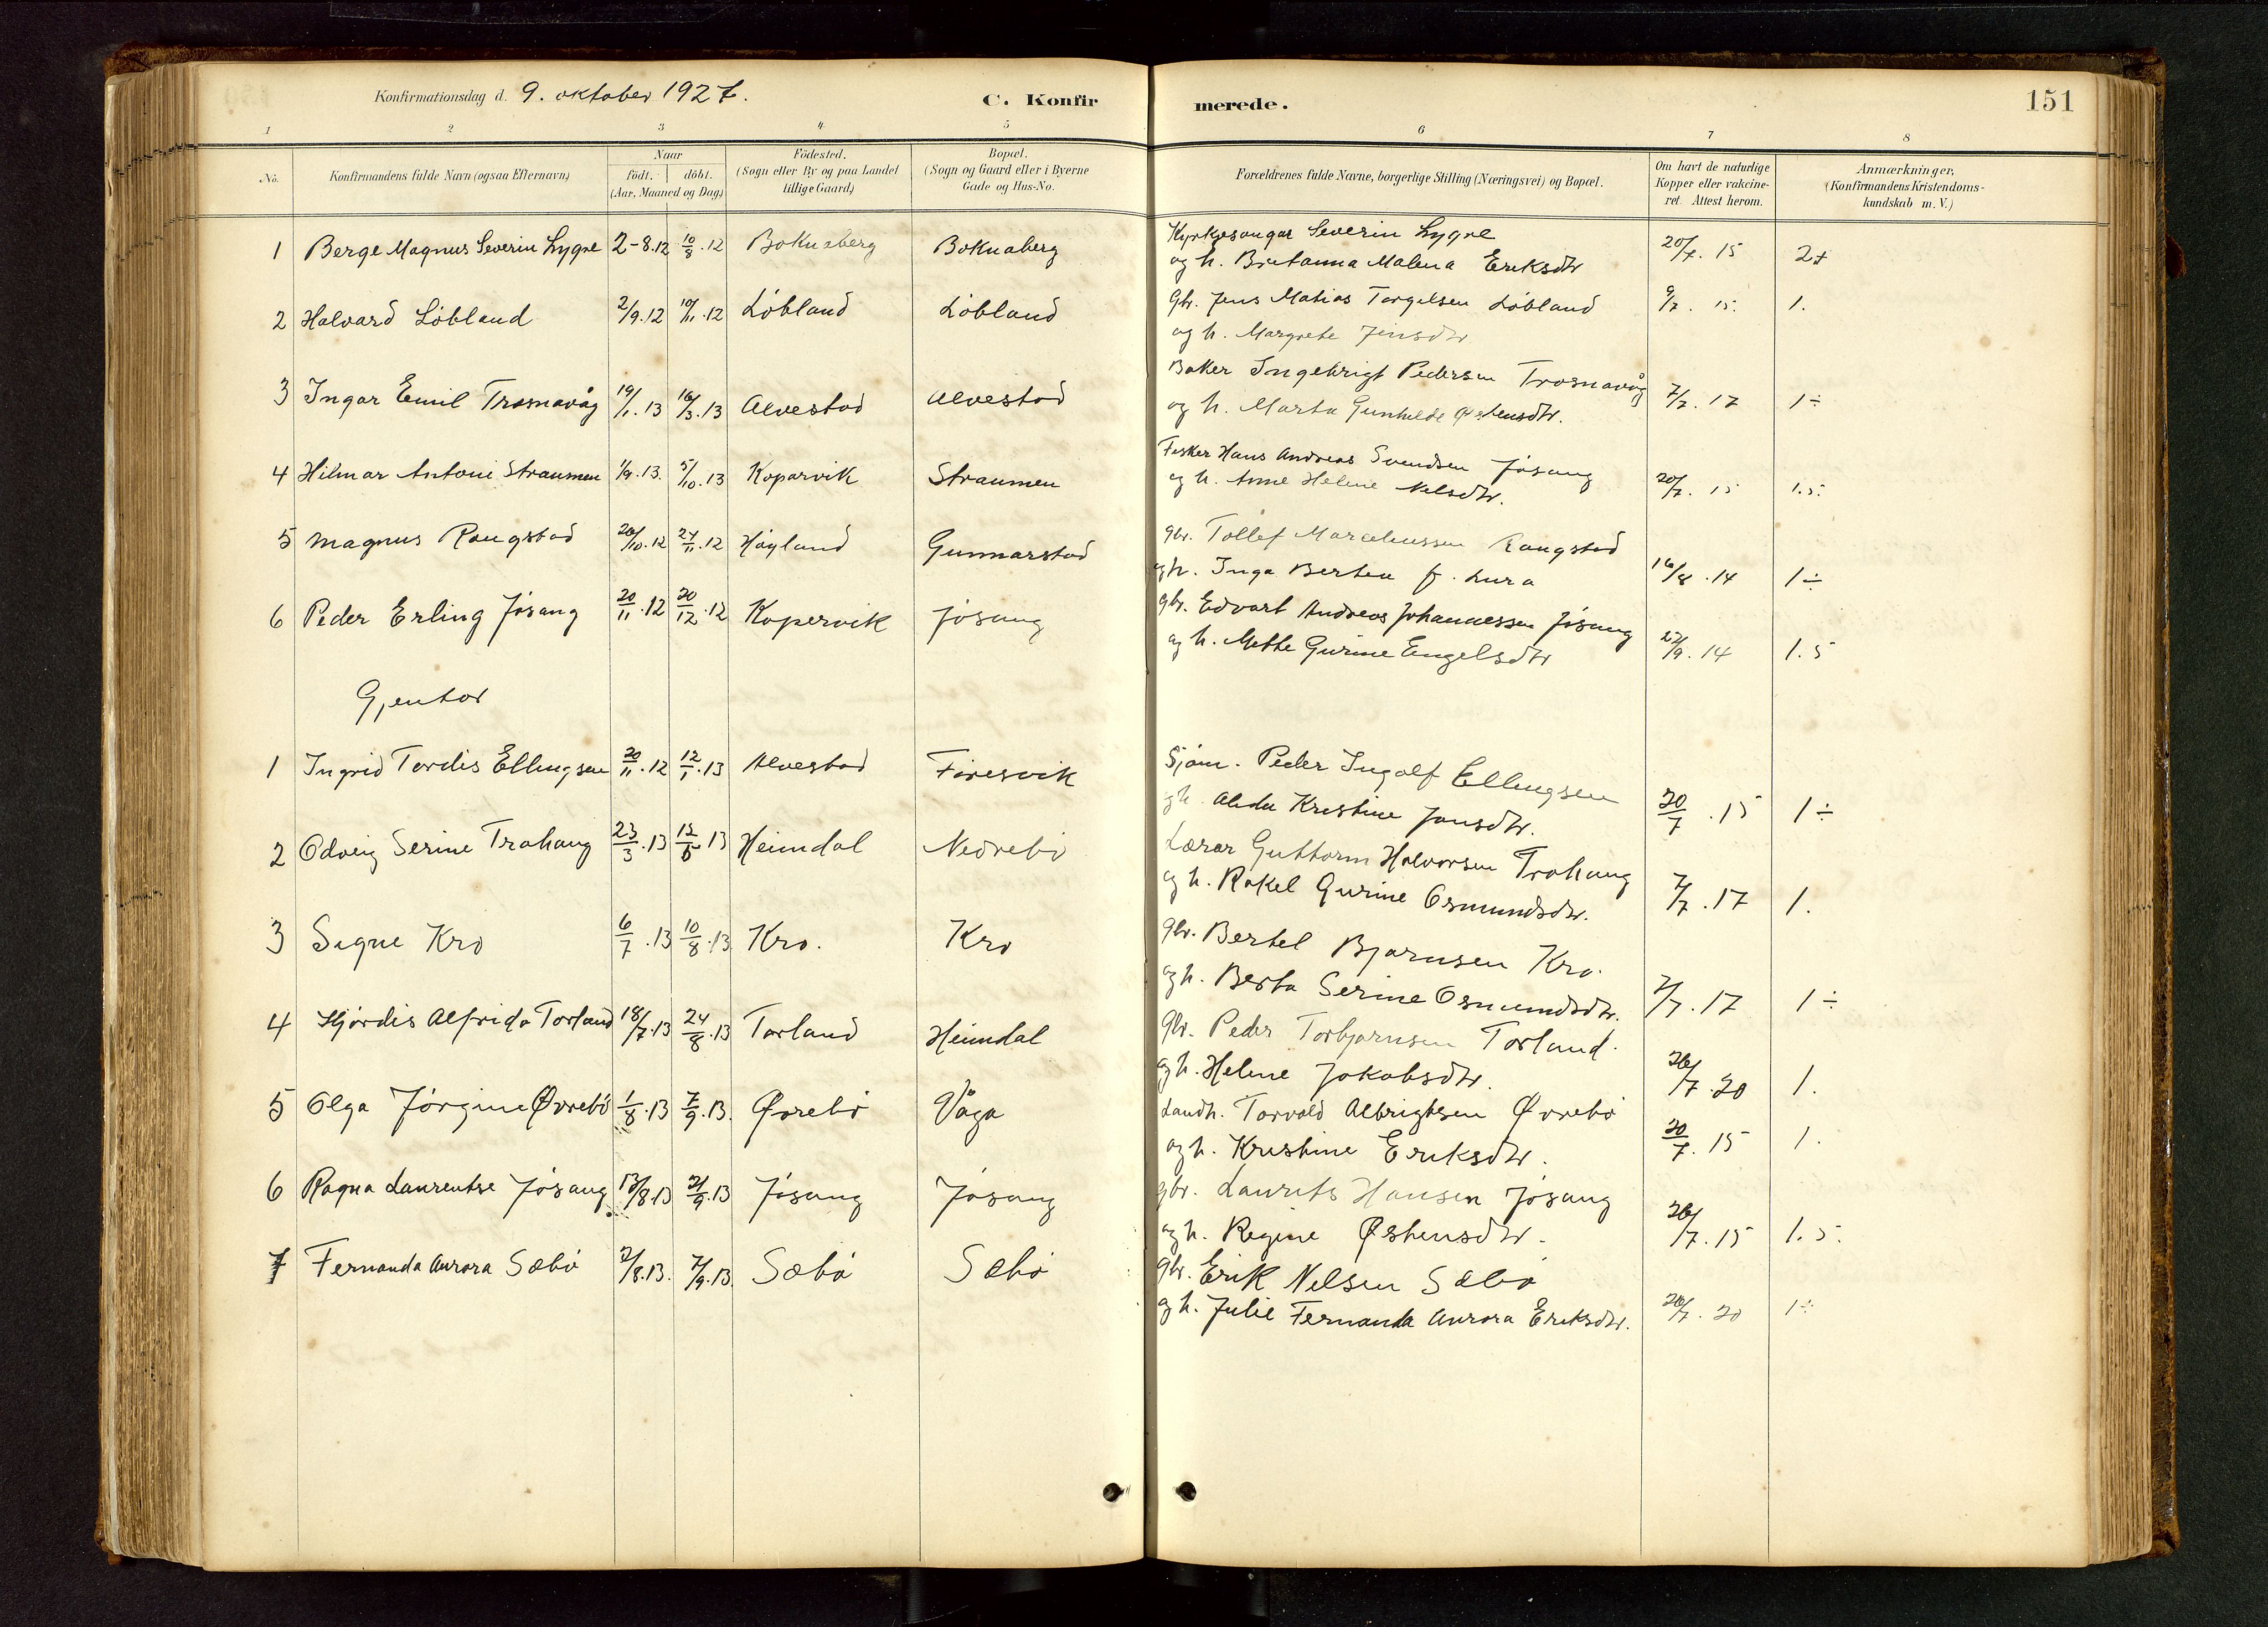 Konfirmationsdag d. 9. oktober 1927.
C. Konfirmerede.
151
1 2 3 4 5 6 7 8
No.
Konfirmandens fulde Navn (ogsaa Efternavn)
Naar
födt. döbt.
(Aar, Maaned og Dag)
Födested.
(Sogn eller By og paa Landet
tillige Gaard)
Bopæl.
(Sogn og Gaard eller i Byerne
Gade og Hus-No.
Forældrenes fulde Navne, borgerlige Stilling (Næringsvei) og Bopæl.
Om havt de naturlige
Kopper eller vakcine-
ret. Attest herom.
Anmærkninger,
(Konfirmandens Kristendoms-
kundskab m. V.)
1 Berge Magnus Severin Lygre 2-8.12 10/8.12 Boknaberg Boknaberg Kyrkjesongar Severin Lygre 20/7. 15 2+
og h. Malena Eriksdtr
2 Halvard Löbland 2/9.12 10/11.12 Löbland Löbland Gbr. Jens Matias Torgelsen Löbland 9/7. 15. 1.
og h. Margrete Jensdtr.
3 Ingar Emil Trosnavåg 19/1.13 16/3.13 Alvestad Alvestad Baker Ingebrigt Pedersen Trosnavåg 7/7. 17 1÷
og h. Marta Gunhilde Østensdtr.
4 Hilmar Antoni Straumen 1/9.13. 5/10.13 Koparvik Straumen Fisker Hans Andreas Svendsen Jösang 20/7. 15 1.5.
og h. Anne Helene Nelsdtr.
5 Magnus Rangstad 20/10.12 24/11.12 Höyland Gunnarstad gbr. Tollef Marceliussen Rangstad 16/8.14 1÷
og h. Inga Bertea f. Lura
6 Peder Erling Jösang 20/11.12 20/12.12 Kopervik Jösang gbr. Edvart Andreas Johannessen Jösang 27/9.14 1.5
og h. Mette Gurine Engelsdtr
Gjentor
1 Ingrid Tordis Ellingsen 20/11.12 12/1.13 Alvestad Föresvik Sjöm. Peder Ingolf Ellingsen 20/7.15 1÷
og h. Alida Kristine Jonsdtr.
2 Odveig Serine Trohaug 23/3.13 12/5.13 Heimdal Nedrebö Lærar Guttorm Halvorsen Trohaug 7/7.17 1.
og h. Rakel Gurine Osmundsdtr.
3 Signe Kro 6/7.13 10/8.13 Kro. Kro gbr. Bertel Bjørnsen Kro. 7/7.17 1÷
og h. Berta Serine Osmundsdtr.
4 Hjördis Alfrida Torland 18/7.13 24/8.13 Torland Heimdal gbr. Peder Torbjørnsen Torland. 26/7.20 1.
og h. Helene Jakobsdtr.
5 Olga Jörgine Øvrebö 1/8.13 7/9.13. Øvrebö Våga Landh. Torvald Albrigtsen Øvrebö 20/7.15 1.
og h. Kristine Eriksdtr.
6 Ragna Laurentse Jösang 13/8.13 21/9.13 Jösang Jösang gbr. Laurits Hansen Jösang 26/7.15 1.5.
og h. Regine Østensdtr.
7 Fernanda Aurora Sæbö 2/8.13. 7/9.13. Sæbö Sæbö gbr. Erik Nelsen Sæbö 26/7.20 1÷
og h. Julie Fernanda Aurora Eriksdtr.